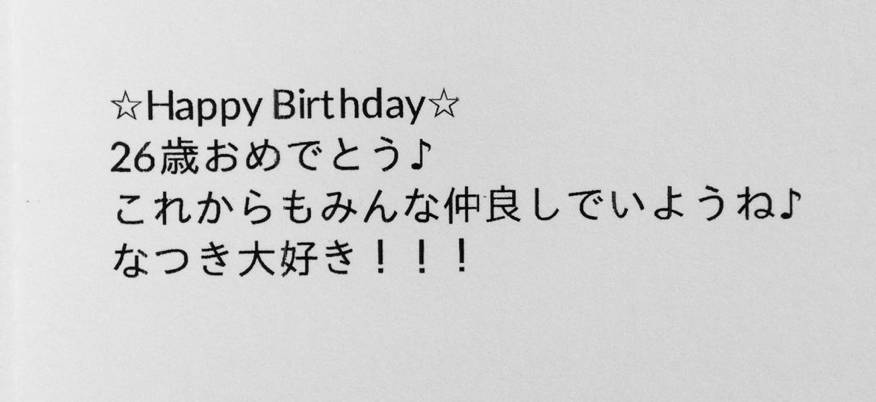 ☆Happy Birthday☆
26歳おめでとう♪
これからもみんな仲良しでいようね♪
なつき大好き！！！